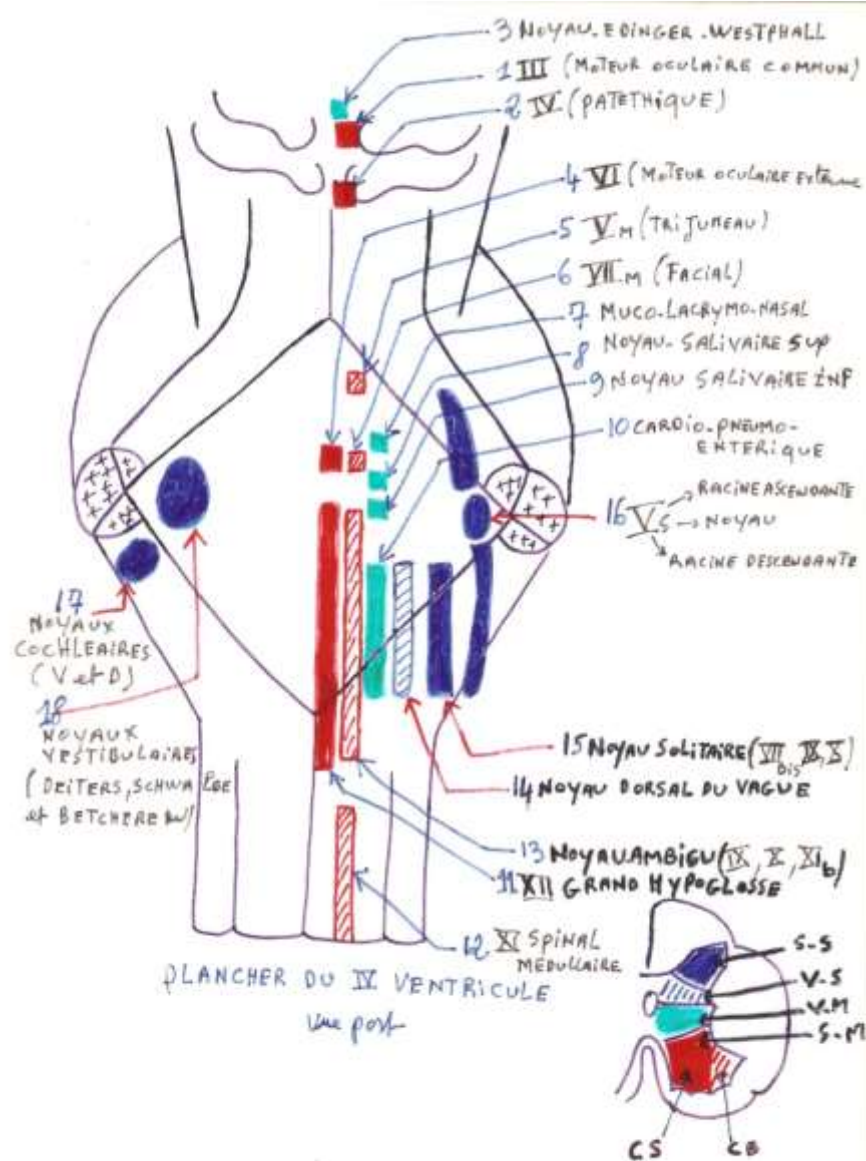 3 NOYAU-EDINGER-WESTPHALL
1 III (MOTEUR OCULAIRE COMMUN)
2 IV (PATETHIQUE)
4 VI (MOTEUR OCULAIRE Externe
5 V M (TRIJUMEAU)
6 VII M (FACIAL)
7 MUCO-LACRYMO-NASAL
8 NOYAU-SALIVAIRE SUP
9 NOYAU SALIVAIRE INF
10 CARDIO-PNEUMO-
ENTERIQUE
16 V S
RACINE ASCENDANTE
NOYAU
RACINE DESCENDANTE
17
NOYAUX
COCHLEAIRES
(V et D)
18
NOYAUX
VESTIBULAIRES
(DEITERS, SCHWALBE
et BETCHEREW)
15 NOYAU SOLITAIRE (VII BIS, IX, X)
14 NOYAU DORSAL DU VAGUE
13 NOYAU AMBIGU (IX, X, XI b)
11 XII GRAND HYPOGLOSSE
12 XI SPINAL
MEDULLAIRE
PLANCHER DU IV VENTRICULE
vue post
S-S
V-S
V-M
S-M
CS CB